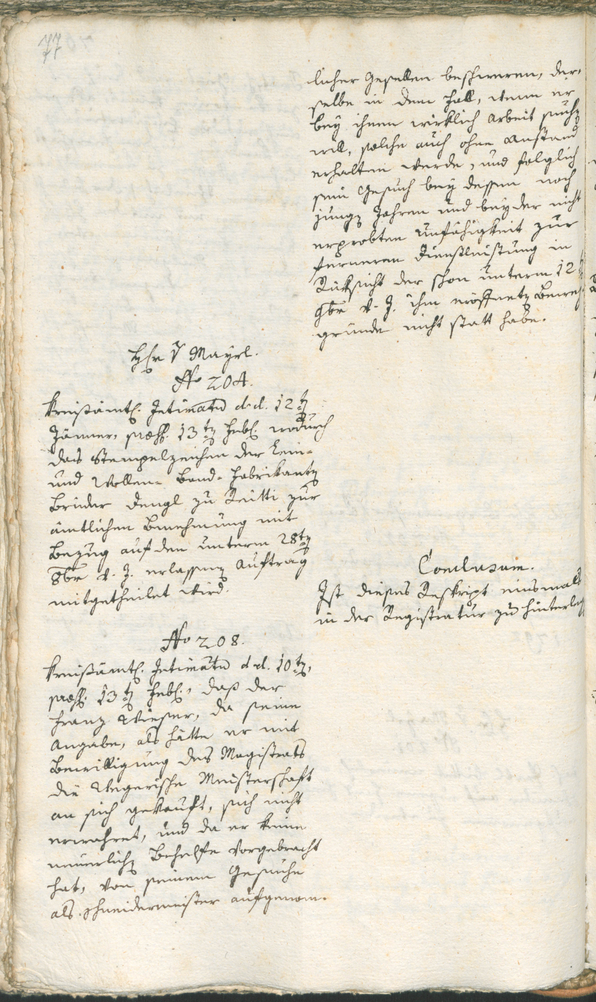 77
licher Gesellen beschweren, der-
selbe in dem Fall, wenn er
bey ihnen wirklich Arbeit suchen
will, solche auch ohne Anstand
erhalten werde, und folglich
sein Gesuch bey dessen noch
jungen Jahren und bey der nicht
erprobten Unfähigkeit zur
ferneren Dienstleistung in
Rücksicht der schon unterm 12
9br v. J. ihm eröffneten Beweg
gründe nicht statt habe.
Hr v Mayrl.
No 204.
Kreisämtl. Intimatum d.d. 12ten
Jänner, præs. 13ten Febr. wodurch
das Stempelzeichen der Lein-
und Wollen-Band-Fabrikanten
Brüder Dengl zu Reitti zur
ämtlichen Benehmung mit
Bezug auf den unterm 28ten
8br v. J. erlassenen Auftrag
mitgetheilet wird.
Conclusum.
Ist dieses Reskript einsmals
in der Registratur zu hinterleg
No 208.
Kreisämtl. Intimatum d.d. 10ten,
præs. 13ten Febr., daß der
Franz Wieser, da seine
Angabe, als hätte er mit
Bewilligung des Magistrats
die Ungerische Meisterschaft
an sich gekauft, sich nicht
erwahret, und da er keine
neuerliche Behelfe vorgebracht
hat, von seinem Gesuche
als Schneidermeister aufgenom-